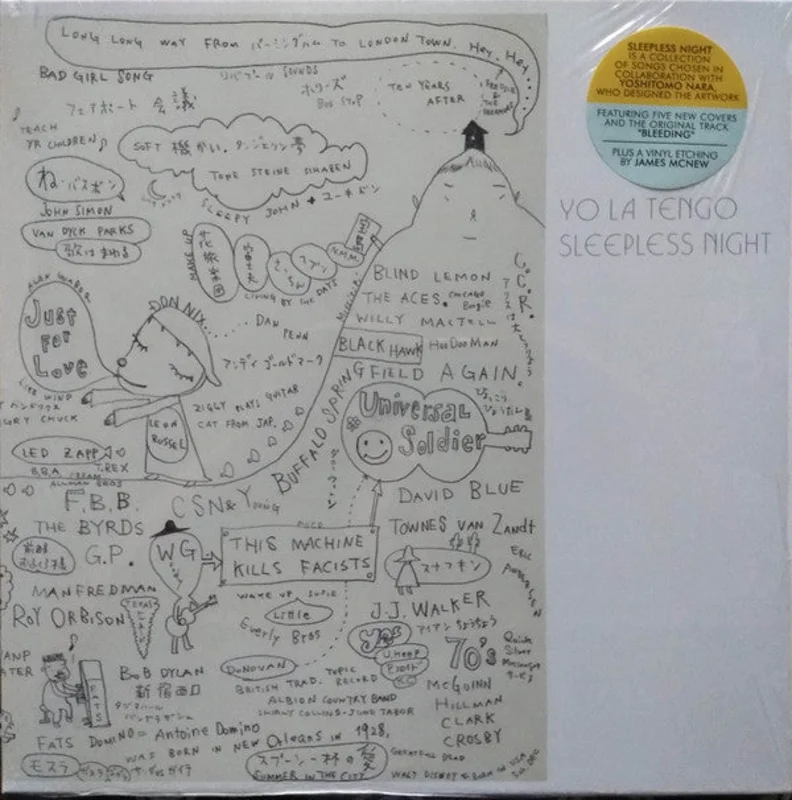 LONG LONG WAY FROM バーミンガム TO LONDON TOWN. Hey, Hey,
BAD GIRL SONG
リバプール SOUNDS
ホリーズ
BUS STOP
TEN YEARS
AFTER
FREDDIE
& THE
DREAMERS
フェアポート 会議
TEACH
YR CHILDREN♪
SOFT 機かい。タンジェリン夢
TONE STEINE SCHABEN
ね・バスボン
SLEEPY JOHN +
JOHN SIMON
VAN DYCK PARKS
歌はまわる
MAKE UP
LIVING BY THE DAYS
ALAN
JUST
FOR
LOVE
DON NIX
DAN
PENN
アンディ ゴールドマーク
LIKE WIND
ZIGGY PLAYS GUITAR
CAT FROM JAP.
LEON
RUSSEL
LED ZAPP
B.B.A.
T.REX
ALLMAN BROS
BLIND LEMON
THE ACES.
CHICAGO
Bogie
WILLY MACTELL
BLACK HAWK
HooDooMAN
BUFFALO SPRINGFIELD AGAIN.
C.C.R.
Universal
Soldier
F.B.B.
CSN& Young
DAVID BLUE
THE BYRDS
TOWNES VAN Zandt
G.P.
WG
THIS MACHINE
KILLS FACISTS
スナフキン
ERIC
ANDERSEN
MANFREDMAN
WAKE UP SUZIE
ROY ORBISON
TEXAS
Little
Everly Bros
J.J. WALKER
アイアン ちょうちょう
yes
U.HEEP
70's
Quick
Silver
Messenger
BOB DYLAN
新宿西口
DONOVAN
TOPIC
RECORD
BRITISH TRAD.
ALBION COUNTRY BAND
SHIRLY COLLINS - JUNE TABOR
McGUINN
HILLMAN
CLARK
CROSBY
FATS
FATS DOMINO = Antoine Domino
WAS BORN IN NEW Orleans IN 1928,
モスラ
スプーン一杯の愛
SUMMER IN THE CITY
GRATEFUL DEAD
WALT DISNEY
BORN IN USA
SLEEPLESS NIGHT
IS A COLLECTION
OF SONGS CHOSEN IN
COLLABORATION WITH
YOSHITOMO NARA,
WHO DESIGNED THE ARTWORK
FEATURING FIVE NEW COVERS
AND THE ORIGINAL TRACK
"BLEEDING"
PLUS A VINYL ETCHING
BY JAMES MCNEW
YO LA TENGO
SLEEPLESS NIGHT